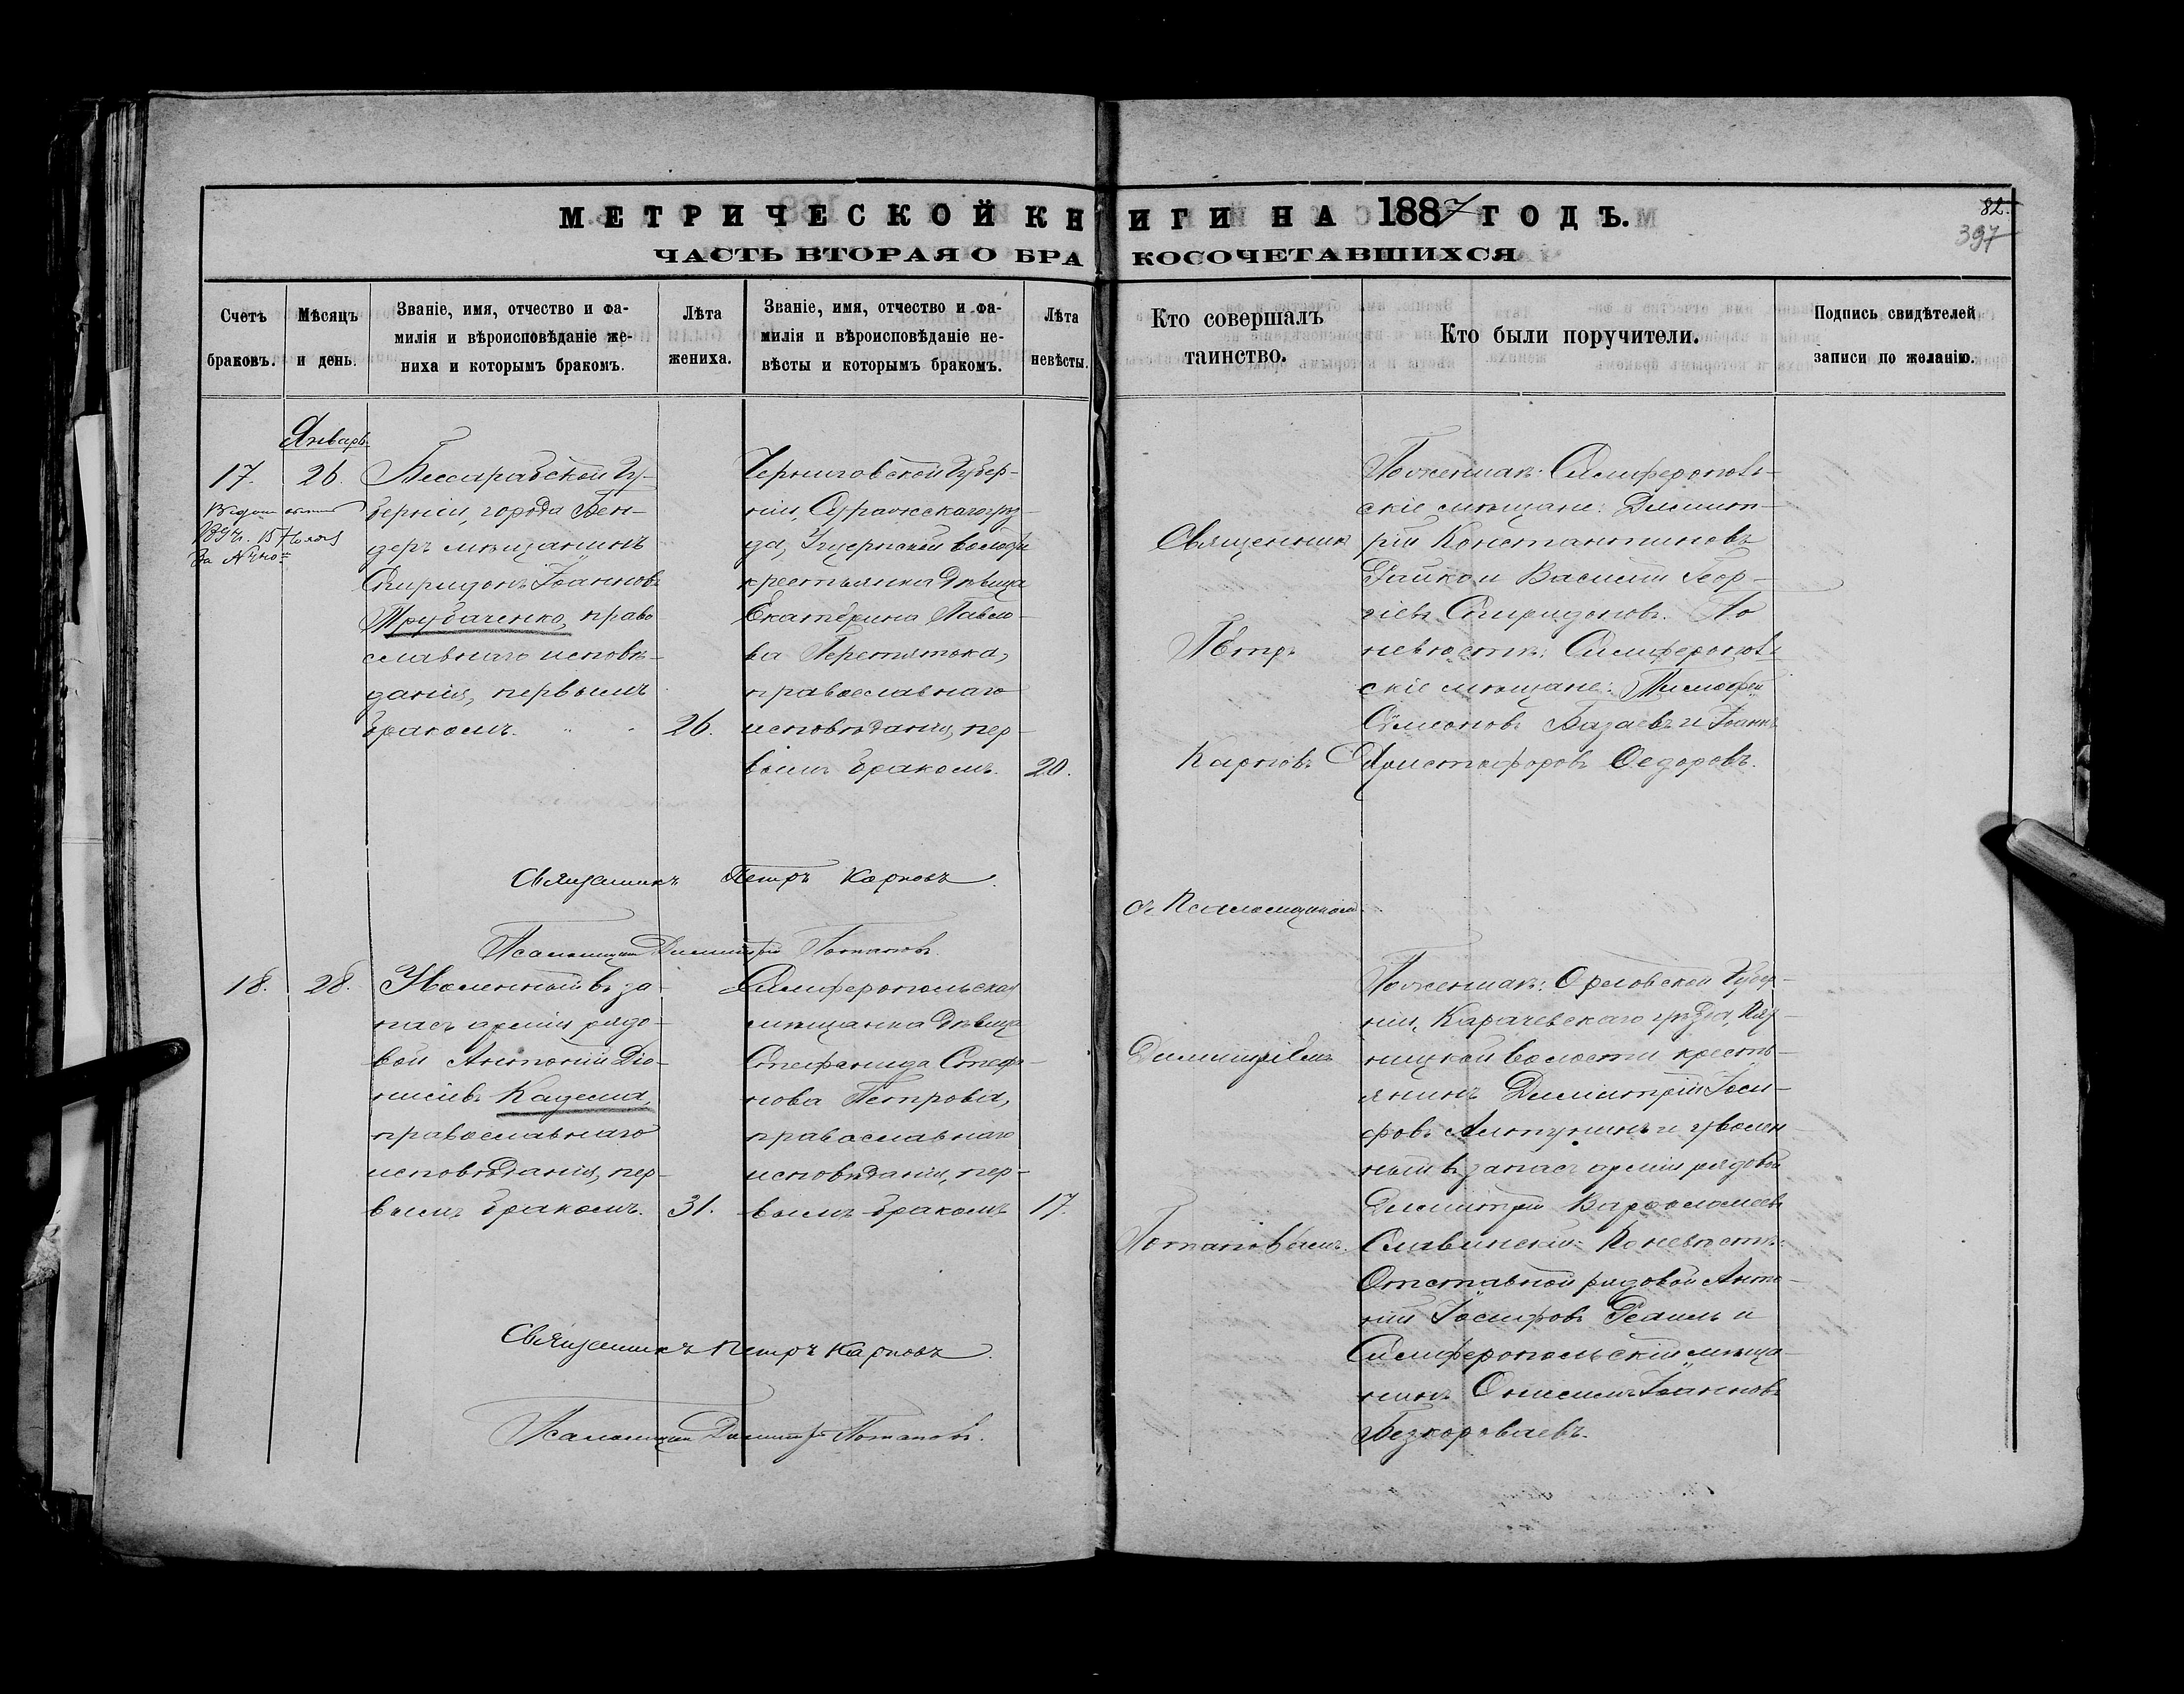 МЕТРИЧЕСКОЙ КНИГИ НА 1887 ГОДЪ.
82.
397
ЧАСТЬ ВТОРАЯ О БРАКОСОЧЕТАВШИХСЯ
Счетъ браковъ.
Мѣсяцъ и день.
Званіе, имя, отчество и фа-
милія и вѣроисповѣданіе же-
ниха и которымъ бракомъ.
Лѣта жениха.
Званіе, имя, отчество и фа-
милія и вѣроисповѣданіе не-
вѣсты и которымъ бракомъ.
Лѣта невѣсты.
Кто совершалъ
таинство.
Кто были поручители.
Подпись свидѣтелей
записи по желанію.
Январь
17.
26.
Бессарабской Гу-
берніи, города Бен-
деръ мѣщанинъ
Спиридонъ Іоанновъ
Трубаченко, право
славнаго исповѣ-
данія, первымъ
бракомъ.
26.
Черниговской Губер-
ніи, Суражскаго уѣз-
да, волости
крестьянка дѣвица
Екатерина Павло-
ва Перепятока,
православнаго
исповѣданія, пер-
вымъ бракомъ.
20.
Священникъ
Петръ
Карповъ
съ Псаломщикомъ
Димитріемъ
Потаповымъ.
По женихѣ: Симферополь-
скіе мѣщане: Димит-
рій Константиновъ
Гайко и Василій Геор-
гіевъ Спиридоновъ. По
невѣстѣ: Симферополь-
скіе мѣщане: Тимофей
Симеоновъ Базаевъ и Іоаннъ
Христофоровъ Ѳедоровъ.
Священникъ Петръ Карповъ.
Псаломщикъ Димитрій Потаповъ.
18.
28.
Уволенный въ за-
пасъ арміи рядо-
вой Антоній Діо-
нисіевъ Кацема,
православнаго
исповѣданія, пер-
вымъ бракомъ.
31.
Симферопольская
мѣщанка дѣвица
Стефанида Стефа-
нова Петрова,
православнаго
исповѣданія, пер-
вымъ бракомъ
17.
По женихѣ: Орловской Губер-
ніи, Карачевскаго уѣзда,
волости кресть-
янинъ Димитрій Іоси-
фовъ и уволен-
ный въ запасъ арміи рядовой
Димитрій Варѳоломеевъ
Славинскій. По невѣстѣ:
Отставной рядовой Анто-
ній Іосифовъ и
Симферопольскій мѣща-
нинъ Онисимъ Іоанновъ
Безкороваевъ.
Священникъ Петръ Карповъ.
Псаломщикъ Димитрій Потаповъ.